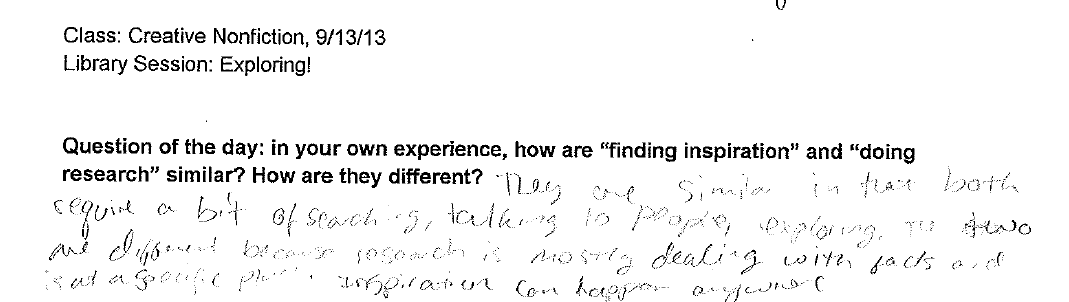 Class: Creative Nonfiction, 9/13/13
Library Session: Exploring!
Question of the day: in your own experience, how are “finding inspiration” and “doing
research” similar? How are they different? They are similar in that both
require a bit of searching, talking to people, exploring. The two
are different because research is mostly dealing with facts and
is at a specific place. Inspiration can happen anywhere